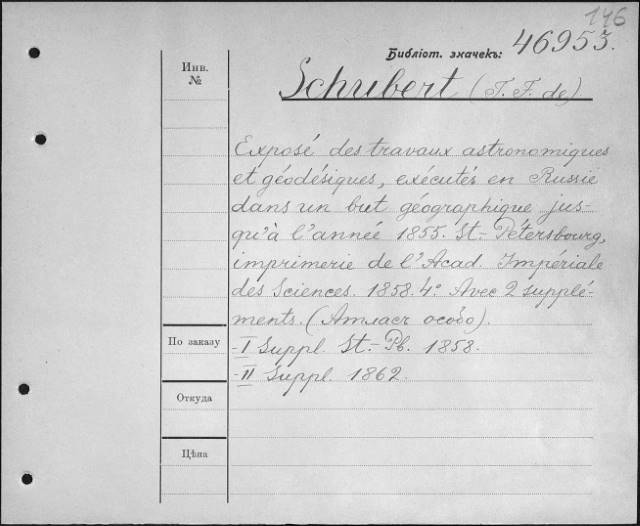 146
Библіот. значекъ: 46953.
Инв.
№
Schubert (T. F. de)
Exposé des travaux astronomiques
et géodésiques, exécutés en Russie
dans un but géographique jus-
qu'à l'année 1855. St.-Pétersbourg,
imprimerie de l'Acad. Impériale
des Sciences. 1858. 4º. Avec 2 supplé-
ments. (Атласъ особо).
По заказу
-I Suppl. St.-Pb. 1858.
-II Suppl. 1862.
Откуда
Цѣна